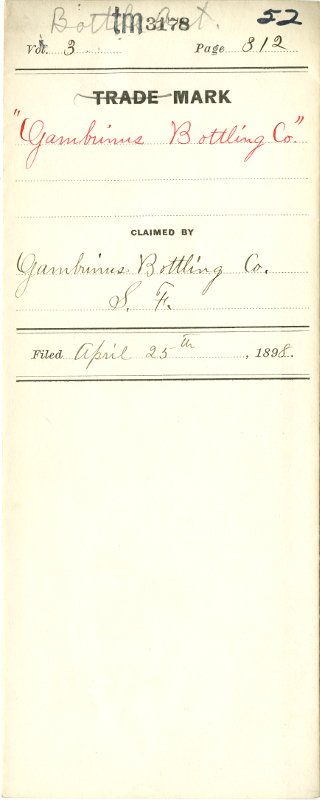 Bottle Act. tm 3178 52
Vol. 3 Page 812
TRADE MARK
"Gambrinus Bottling Co."
CLAIMED BY
Gambrinus Bottling Co.
S. F.
Filed April 25th, 1898.